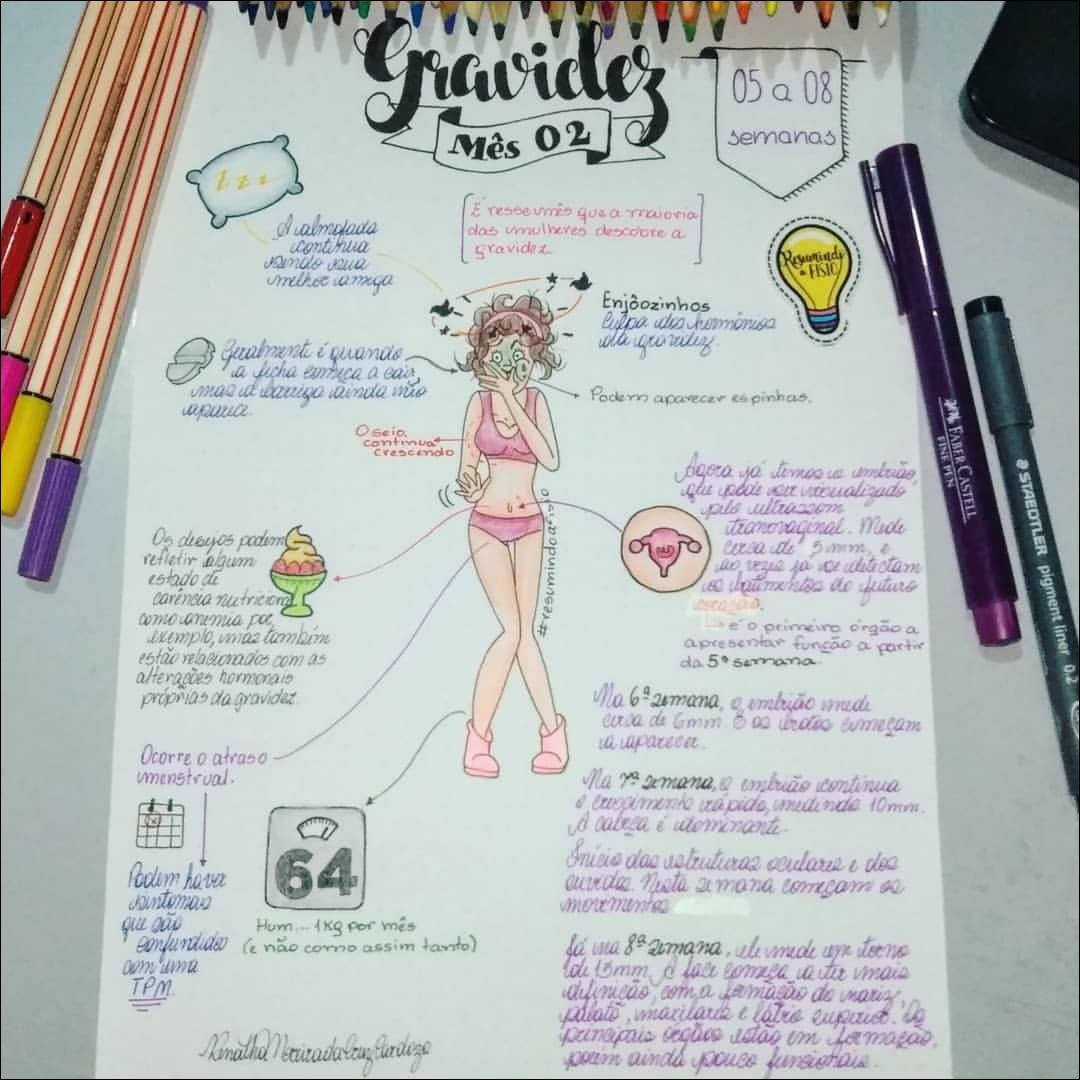 Gravidez
Mês 02
05 a 08
semanas
z z z
A almofada
continua
sendo sua
melhor amiga
É nesse mês que a maioria
das mulheres descobre a
gravidez.
Resumindo
a FISIO
Enjôozinhos
Culpa dos hormônios
da gravidez.
Geralmente é quando
a ficha começa a cair
mas a barriga ainda não
aparece.
Podem aparecer espinhas.
O seio
continua
crescendo
#resumindoafisio
Agora já temos o embrião,
que pode ser visualizado
pelo ultrassom
transvaginal. Mede
cerca de 5mm, e
às vezes já se detectam
os batimentos do futuro
coração.
é o primeiro órgão a
apresentar função a partir
da 5ª semana.
Os desejos podem
refletir algum
estado de
carência nutricional
como anemia por
exemplo, mas também
estão relacionados com as
alterações hormonais
próprias da gravidez.
Na 6ª semana, o embrião mede
cerca de 6mm e os brotos começam
a aparecer.
Ocorre o atraso
menstrual.
Na 7ª semana, o embrião continua
o crescimento rápido, medindo 10mm.
A cabeça é dominante.
Início das estruturas oculares e dos
ouvidos. Nesta semana começam os
movimentos
64
Podem haver
sintomas
que são
confundidos
com uma
TPM.
Hum... 1Kg por mês
(e não como assim tanto)
Já na 8ª semana, ele mede em torno
de 15mm. A face começa a ter mais
definição, com a formação do nariz,
palato, maxilares e lábio superior. Os
principais órgãos estão em formação,
porém ainda pouco funcionais.
FABER CASTELL
FINE PEN
STAEDTLER pigment liner 0.2